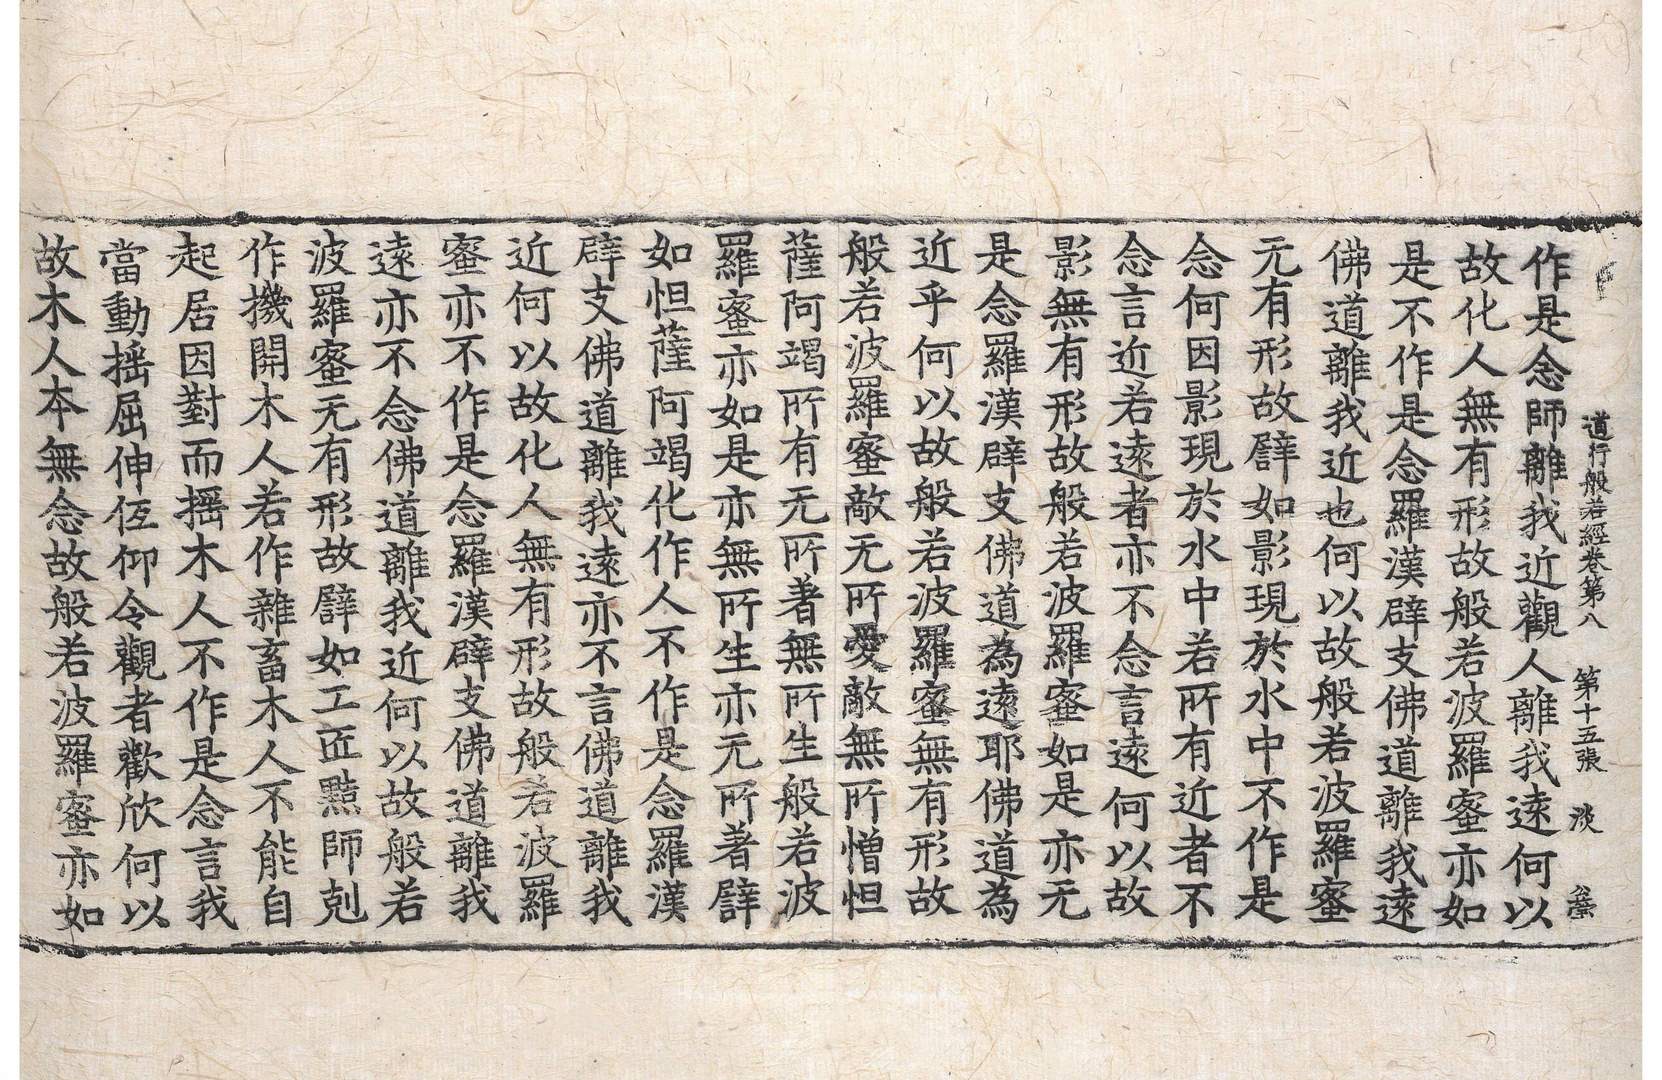 道行般若經卷第八 第十五張 淡
作是念師離我近觀人離我遠何以
故化人無有形故般若波羅蜜亦如
是不作是念羅漢辟支佛道離我遠
佛道離我近也何以故般若波羅蜜
无有形故譬如影現於水中不作是
念何因影現於水中若所有近者不
念言近若遠者亦不念言遠何以故
影無有形故般若波羅蜜如是亦无
是念羅漢辟支佛道為遠耶佛道為
近乎何以故般若波羅蜜無有形故
般若波羅蜜敵无所愛敵無所憎怛
薩阿竭所有无所著無所生般若波
羅蜜亦如是亦無所生亦无所著譬
如怛薩阿竭化作人不作是念羅漢
辟支佛道離我遠亦不言佛道離我
近何以故化人無有形故般若波羅
蜜亦不作是念羅漢辟支佛道離我
遠亦不念佛道離我近何以故般若
波羅蜜无有形故譬如工匠黠師剋
作機關木人若作雜畜木人不能自
起居因對而搖木人不作是念言我
當動搖屈伸仾仰令觀者歡欣何以
故木人本無念故般若波羅蜜亦如